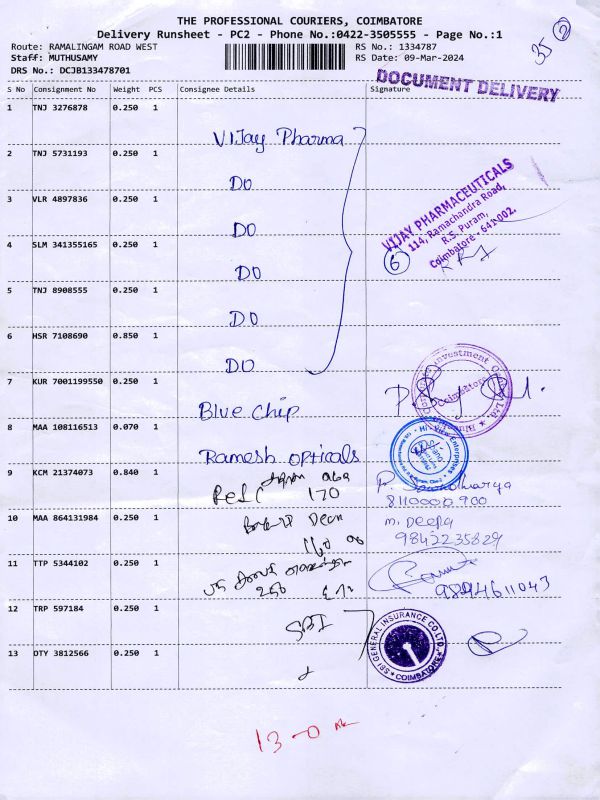 THE PROFESSIONAL COURIERS, COIMBATORE
Delivery Runsheet - PC2 - Phone No.:0422-3505555 - Page No.:1
Route: RAMALINGAM ROAD WEST
Staff: MUTHUSAMY
DRS No.: DCJB133478701
RS No.: 1334787
RS Date: 09-Mar-2024
35 2
DOCUMENT DELIVERY
S No Consignment No Weight PCS Consignee Details Signature
1 TNJ 3276878 0.250 1 Vijay Pharma
2 TNJ 5731193 0.250 1 DO
3 VLR 4897836 0.250 1 DO
4 SLM 341355165 0.250 1 DO
5 TNJ 8908555 0.250 1 DO
6 HSR 7108690 0.850 1 DO
VIJAY PHARMACEUTICALS
114, Ramachandra Road,
R.S. Puram,
Coimbatore - 641 002.
6
7 KUR 7001199550 0.250 1 Blue Chip
8 MAA 108116513 0.070 1 Ramesh opticals
Hi - View Enterprises
9 KCM 21374073 0.840 1
170
8110000900
10 MAA 864131984 0.250 1
m. Deepa
9842235829
11 TTP 5344102 0.250 1
9894611043
12 TRP 597184 0.250 1 SBI
SBI GENERAL INSURANCE CO.LTD.
COIMBATORE
13 DTY 3812566 0.250 1
13-0